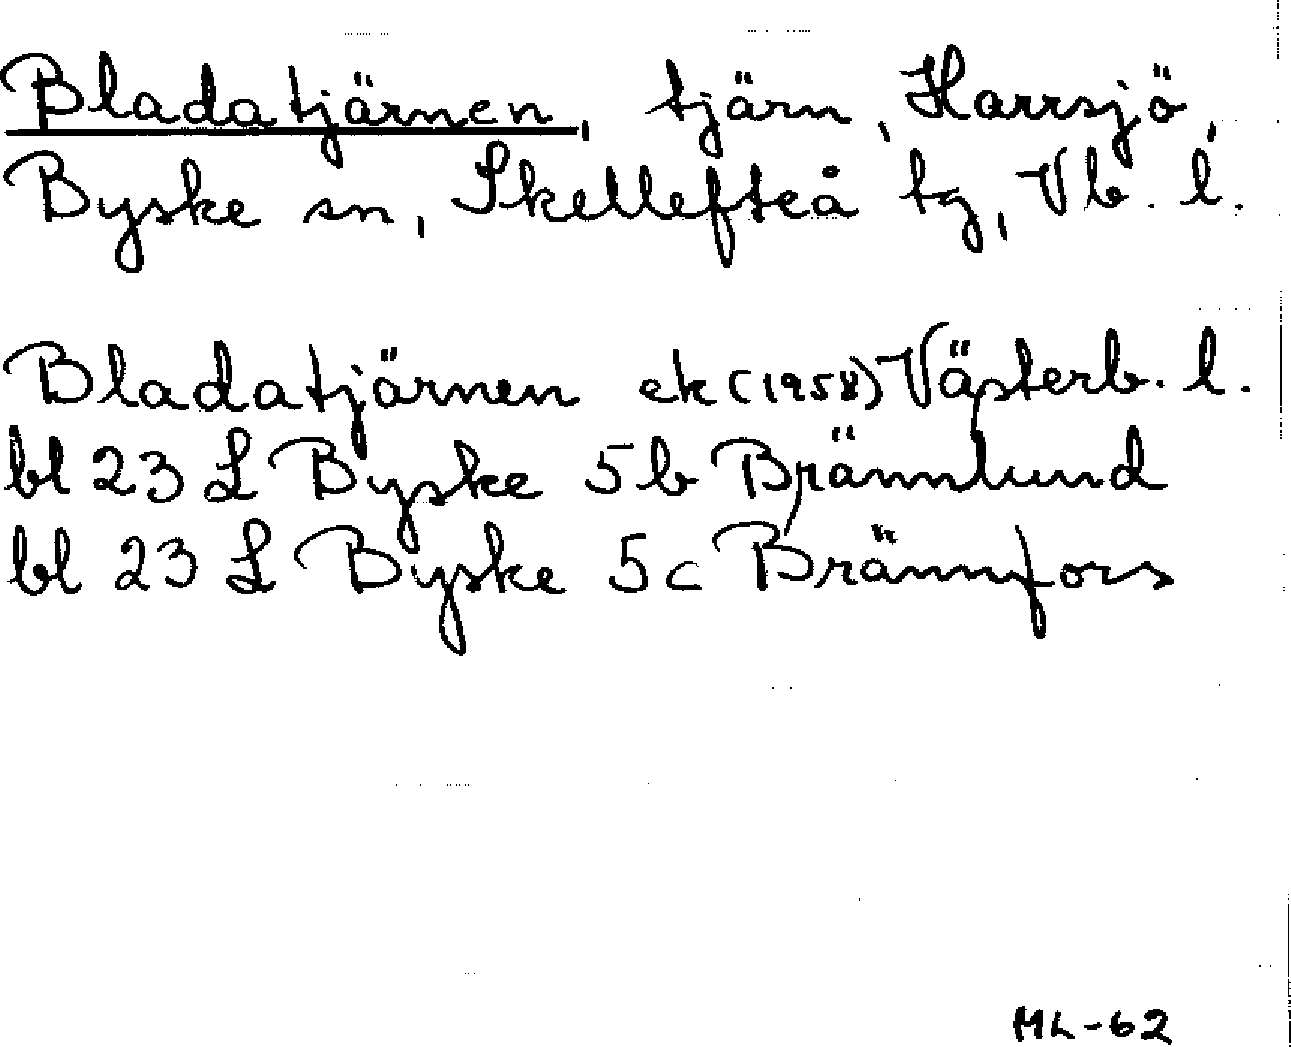 Bladatjärnen, tjärn, Harrsjö,
Byske sn, Skellefteå tg, Vb. l.
Bladatjärnen ek (1958) Västerb. l.
bl 23 L Byske 5b Brännlund
bl 23 L Byske 5c Brännfors
ML-62